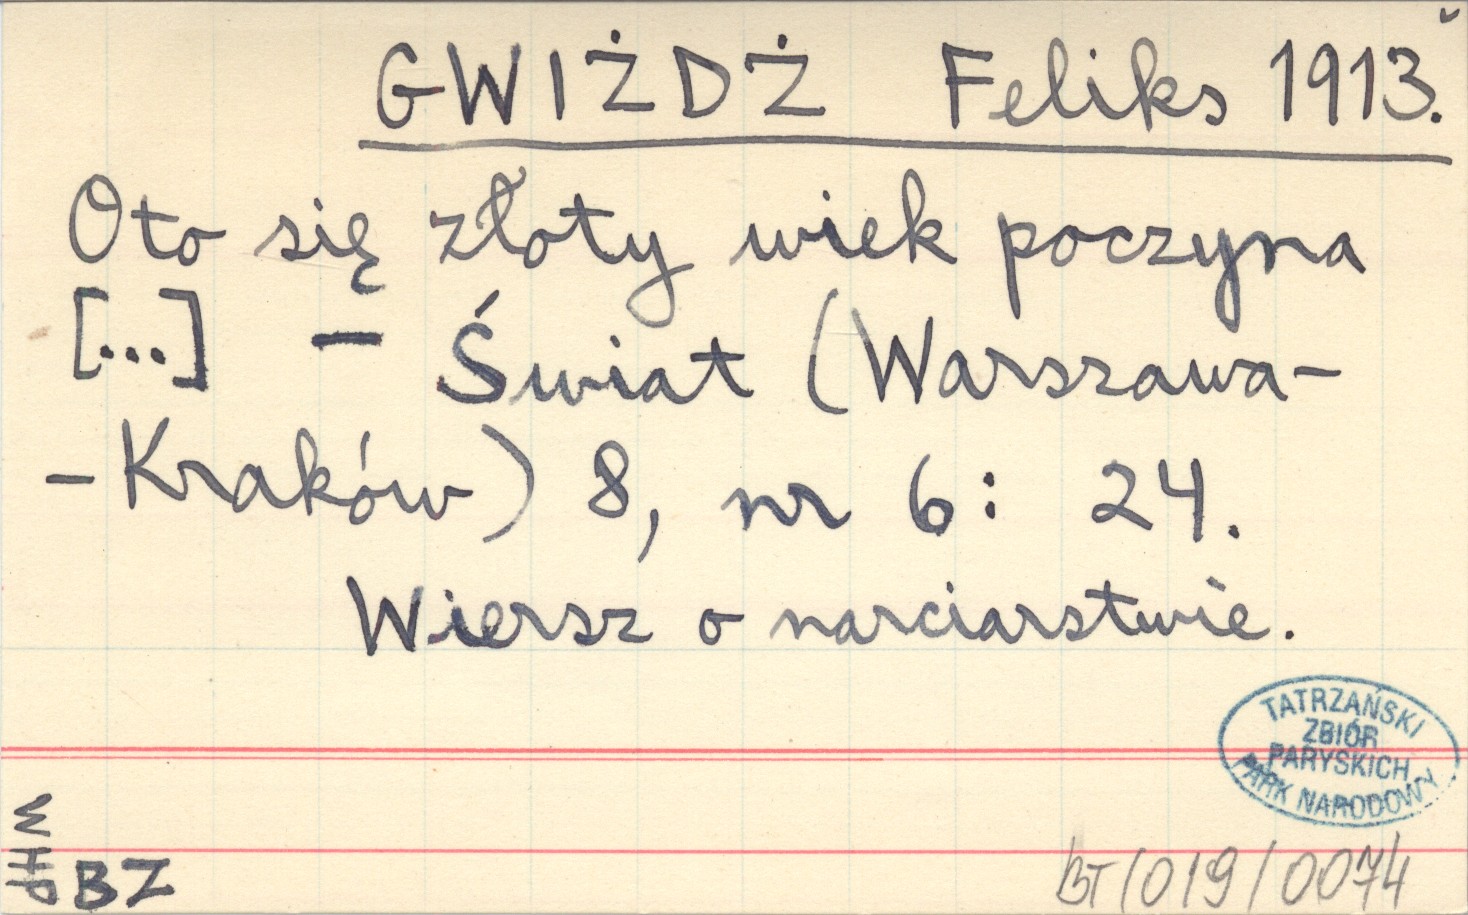 GWIŻDŻ Feliks 1913.
Oto się złoty wiek poczyna
[...] – Świat (Warszawa-
-Kraków) 8, nr 6: 24.
Wiersz o narciarstwie.
TATRZAŃSKI
ZBIÓR
PARYSKICH
PARK NARODOWY
WHP
BZ
BT/019/0074